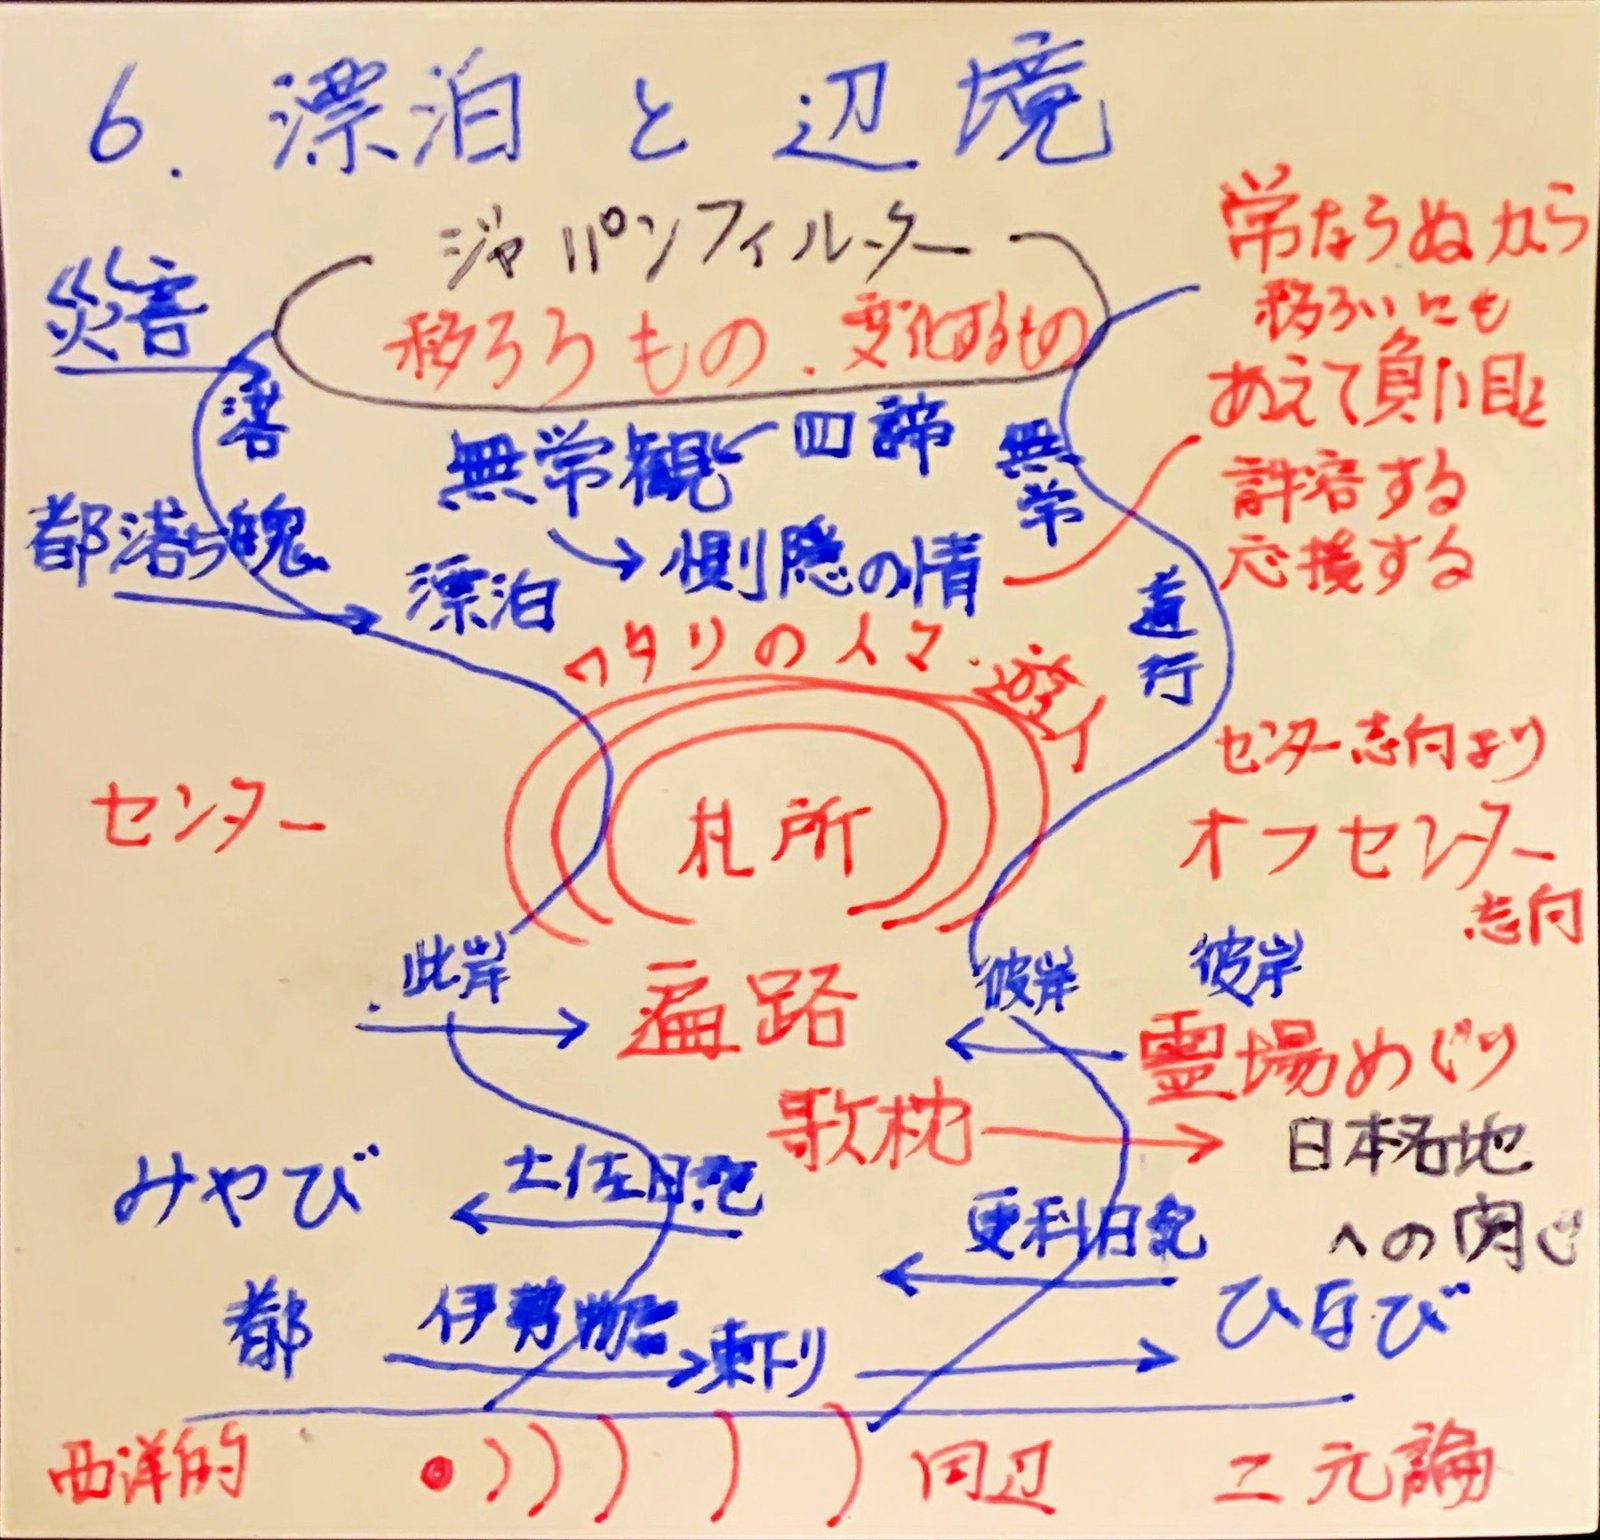 6. 漂泊と辺境
ジャパンフィルター
移ろうもの．変化するもの
災害
落
都落ち
無常観
四諦
無常
惻隠の情
漂泊
道行
常ならぬから
移ろいにも
あえて負い目と
許容する
応援する
ワタリの人々．遊行
センター
札所
センター志向より
オフセンター
志向
此岸
遍路
彼岸
彼岸
霊場めぐり
歌枕
日本名地
への関心
みやび
土佐日記
更科日記
ひなび
都
伊勢物語
東下り
西洋的
周辺
二元論